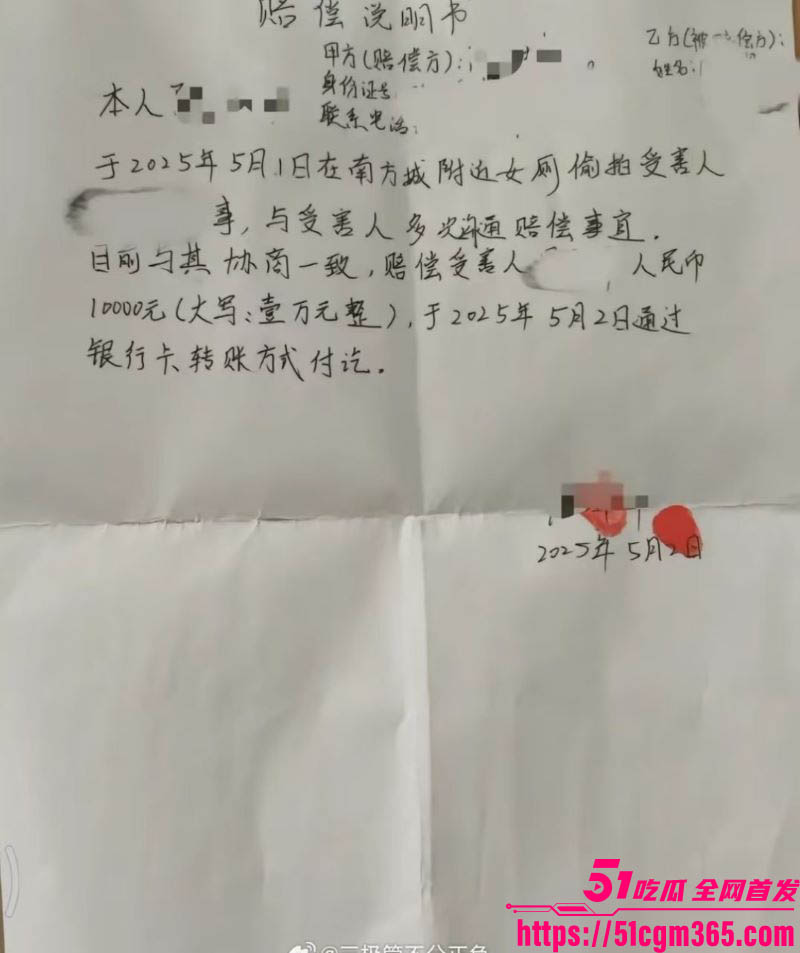 赔偿说明书
甲方(赔偿方):
乙方(被 偿方):
身份证号
姓名:
联系电话:
本人
于2025年5月1日在南方城附近女厕偷拍受害人
事,与受害人多次沟通赔偿事宜.
目前与其协商一致,赔偿受害人 人民币
10000元(大写:壹万元整),于2025年5月2日通过
银行卡转账方式付讫.
2025年5月2日
51吃瓜 全网首发
https://51cgm365.com